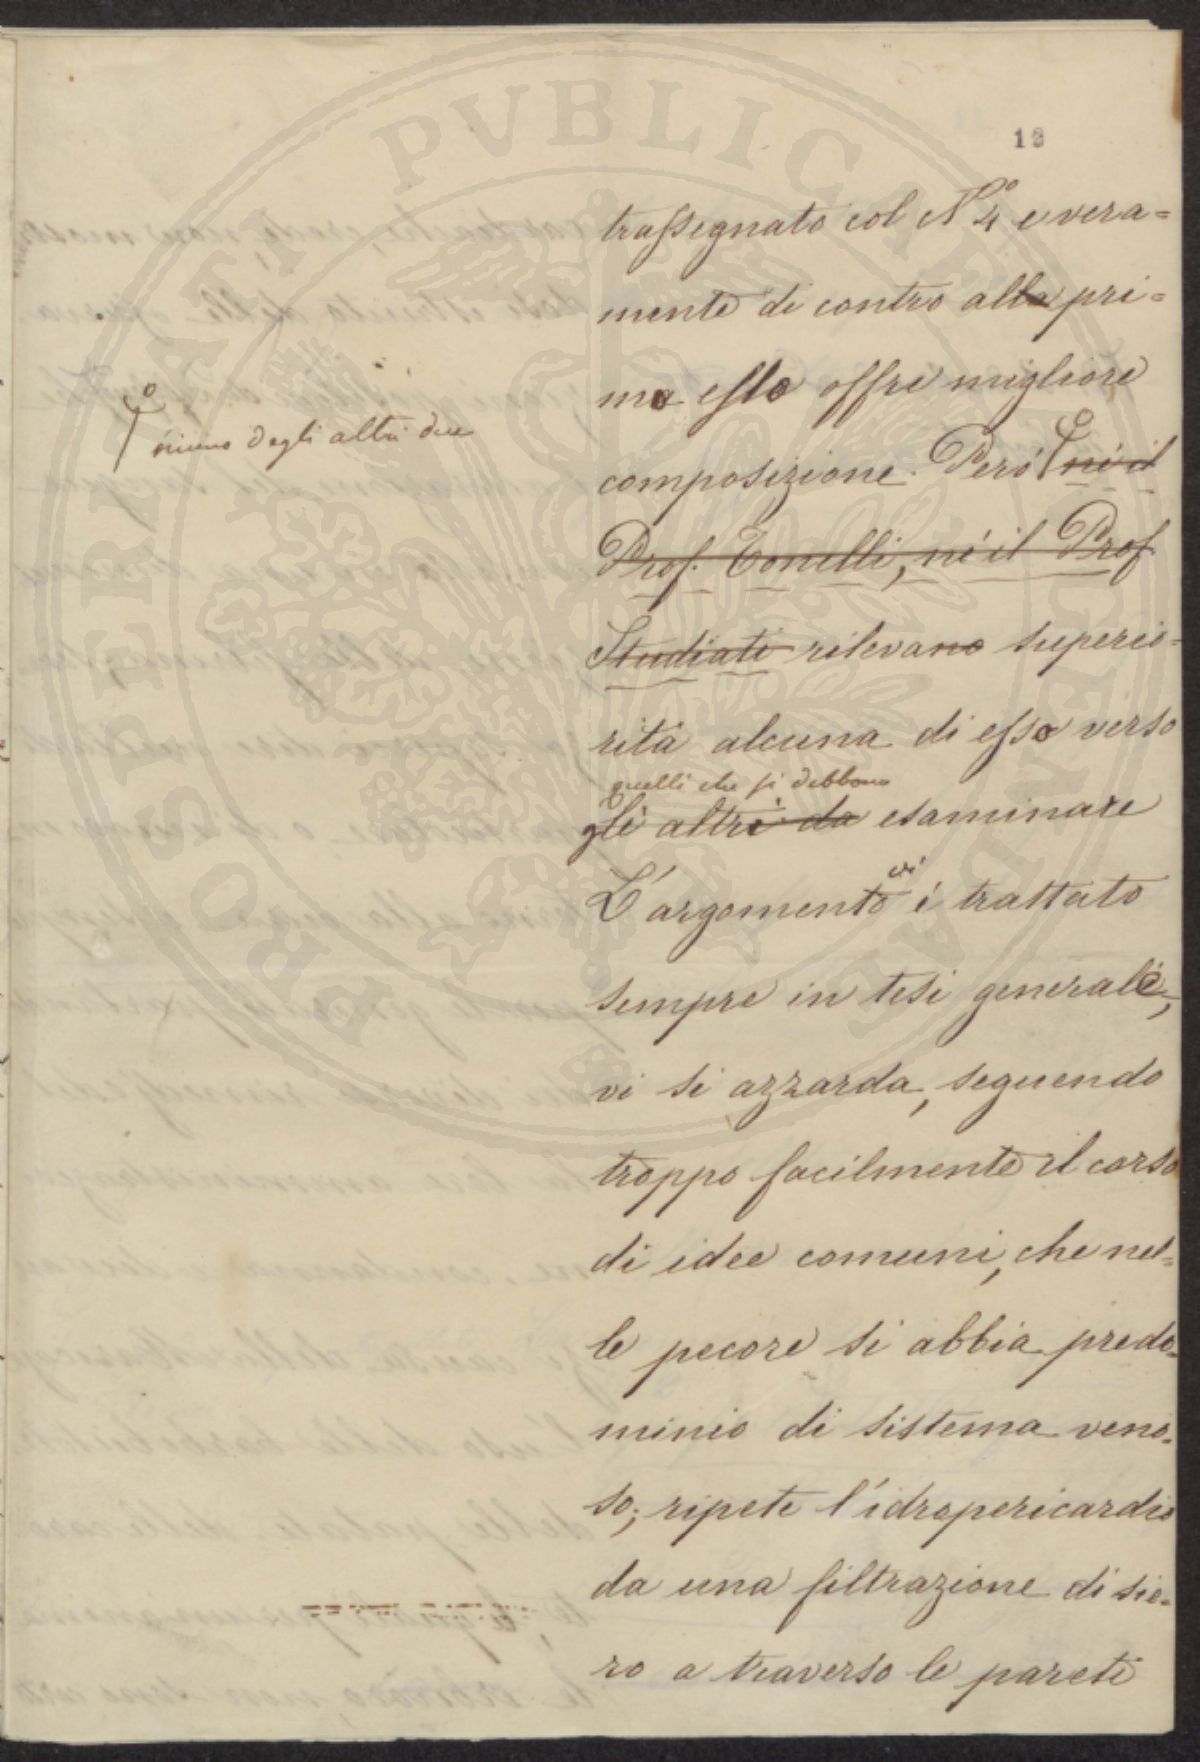 PROSPERITATI PVBLICAE AVGENDAE
18
trassegnato col N.º 4 e vera=
mente di contro alla pri=
ma essa offre migliore
niuno degli altri due
composizione. Però né il
Prof. Tonelli, né il Prof
Studiati rilevano superio=
rità alcuna di esso verso
quelli che si debbono
gli altri da esaminare
L'argomento vi è trattato
sempre in tesi generale,
vi si azzarda, seguendo
troppo facilmente il corso
di idee comuni, che nel=
le pecore si abbia predo=
minio di sistema veno=
so; ripete l'idropericardio
da una filtrazione di sie=
ro a traverso le pareti